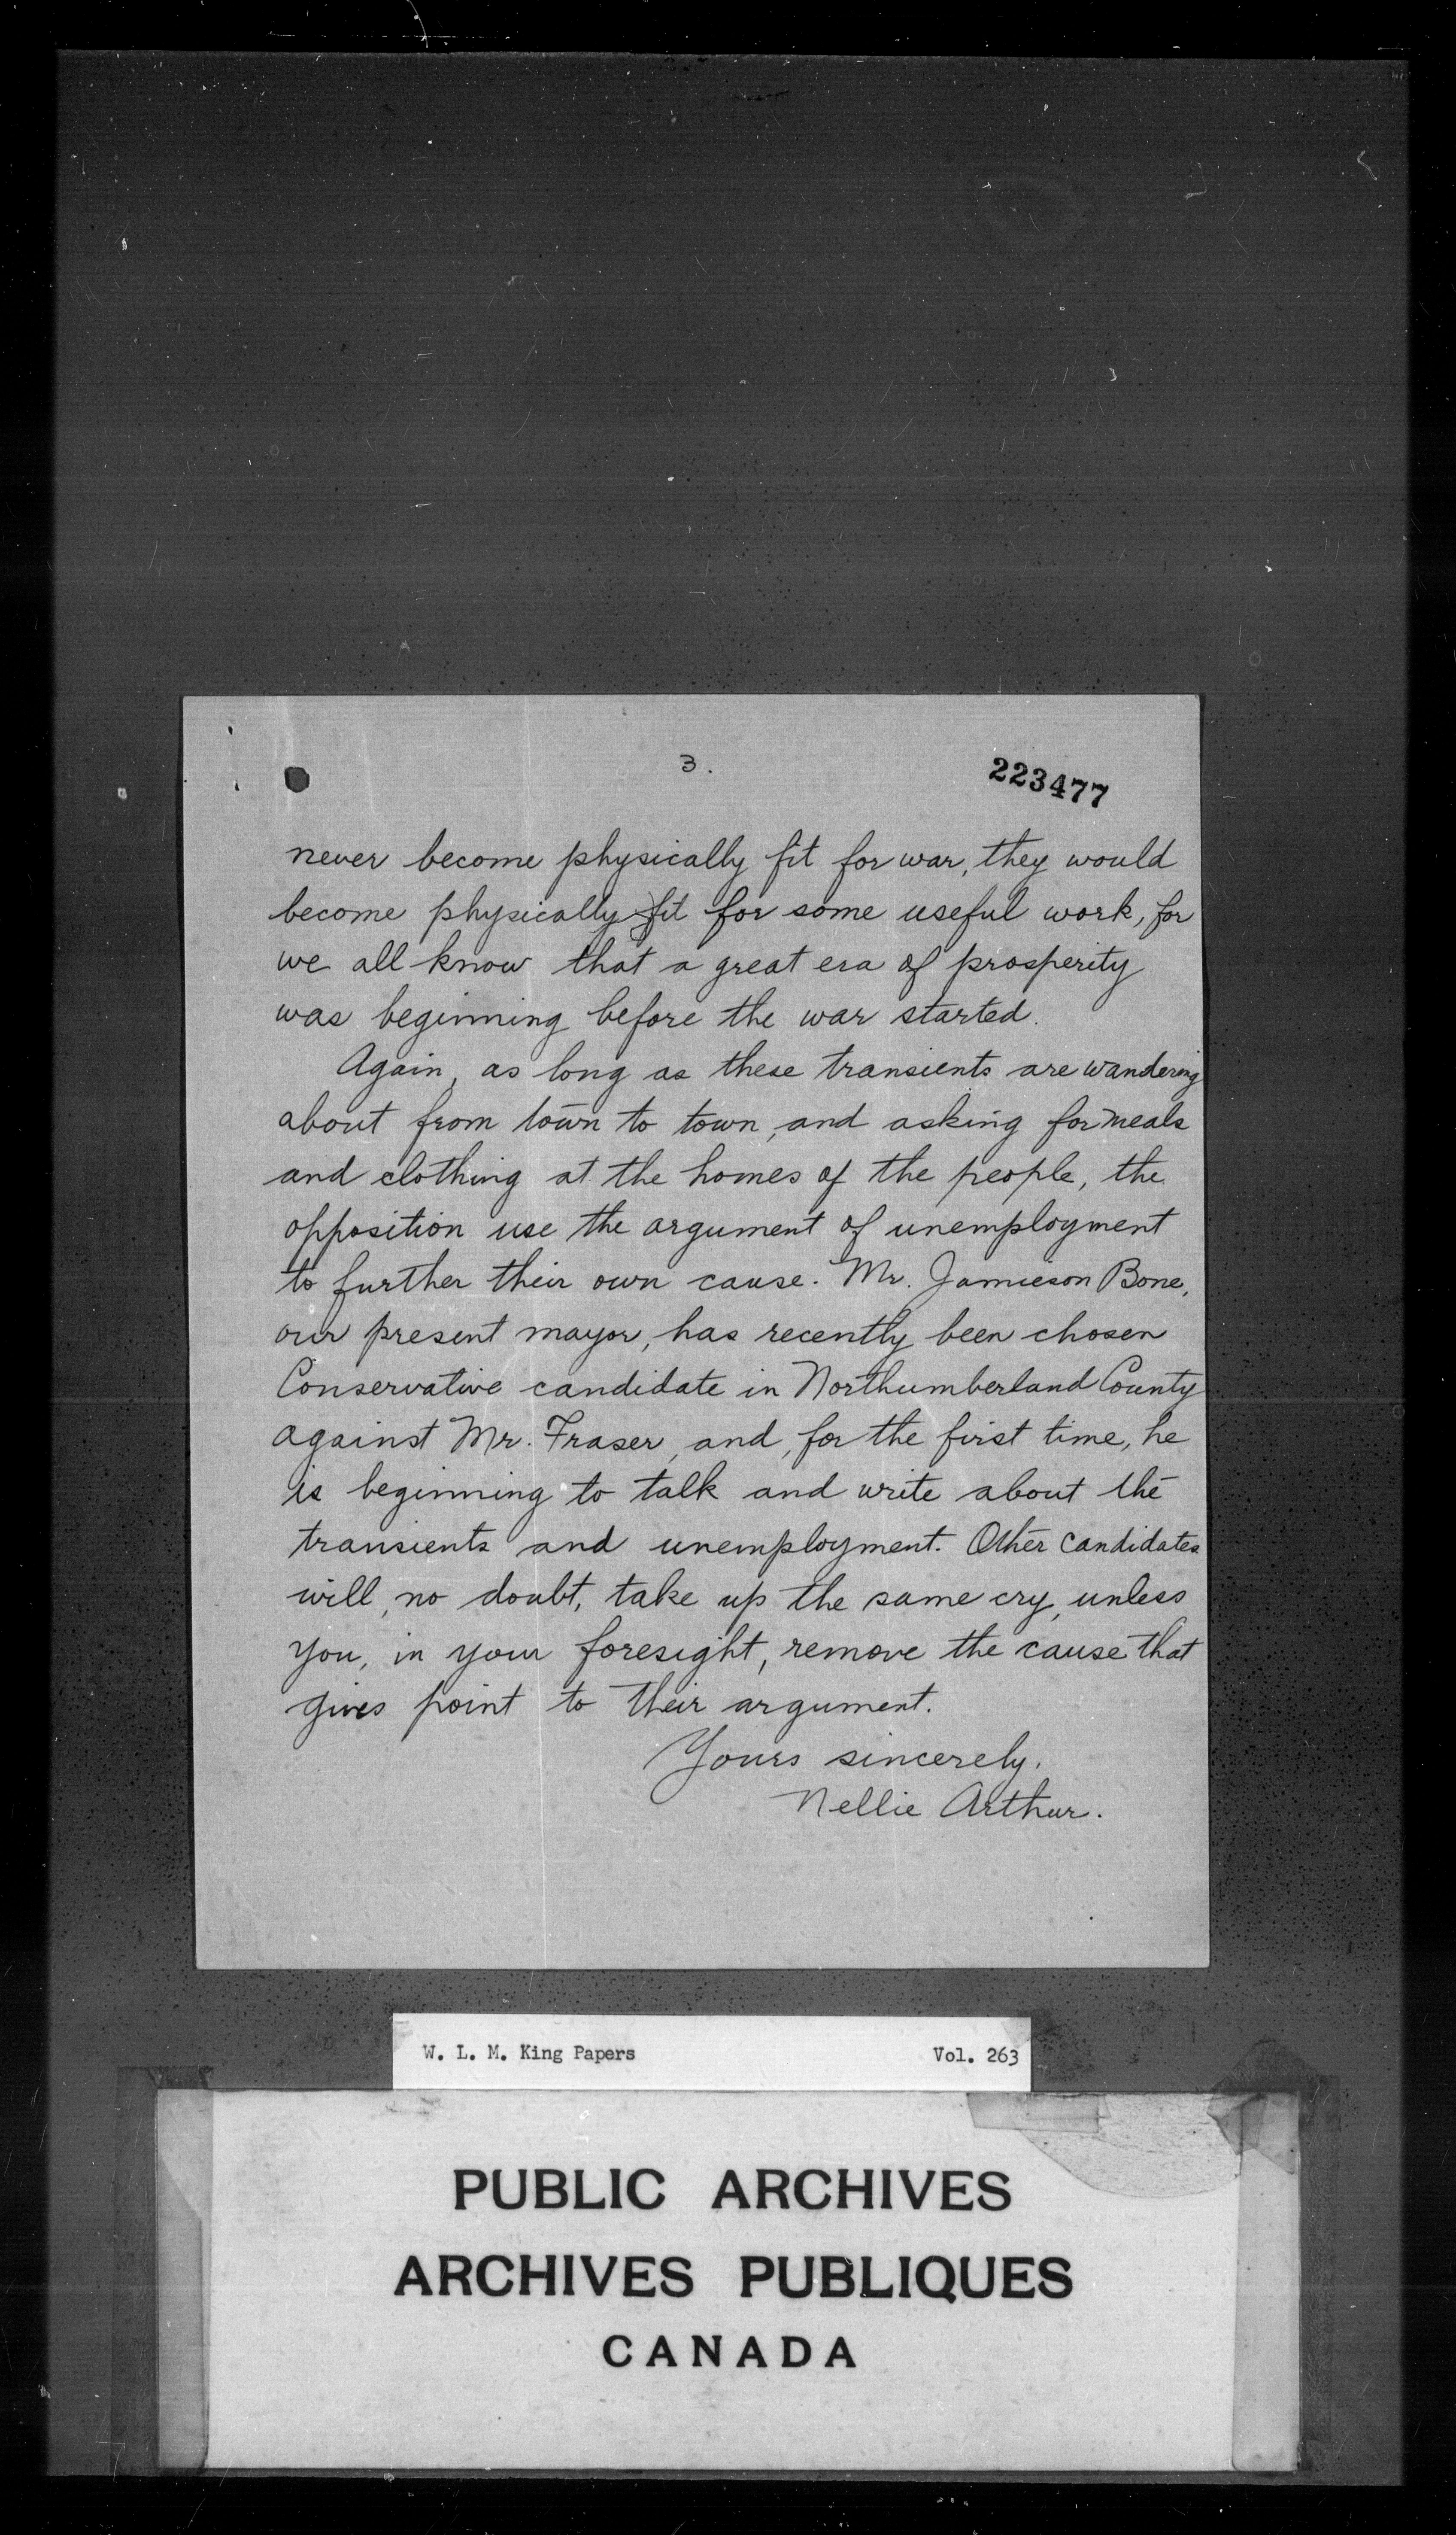 3.
223477
never become physically fit for war, they would
become physically fit for some useful work, for
we all know that a great era of prosperity
was beginning before the war started.
Again, as long as these transients are wandering
about from town to town, and asking for meals
and clothing at the homes of the people, the
opposition use the argument of unemployment
to further their own cause. Mr. Jamieson Bone,
our present mayor, has recently been chosen
Conservative candidate in Northumberland County
against Mr. Fraser, and, for the first time, he
is beginning to talk and write about the
transients and unemployment. Other candidates
will, no doubt, take up the same cry, unless
you, in your foresight, remove the cause that
gives point to their argument.
Yours sincerely,
Nellie Arthur.
W. L. M. King Papers Vol. 263
PUBLIC ARCHIVES
ARCHIVES PUBLIQUES
CANADA